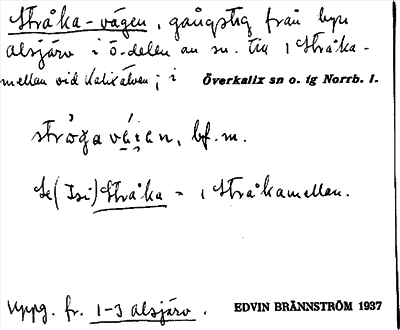 Stråka-vägen, gångstig från byn
alsjärv i ö.delen av sn. till 1 Stråka-
mellan vid Kalixälven; i Överkalix sn o. tg Norrb. l.
bf. m.
Se (Isi) Stråka = 1 Stråkamellan.
Uppg. fr. 1-3 alsjärv. EDVIN BRÄNNSTRÖM 1937